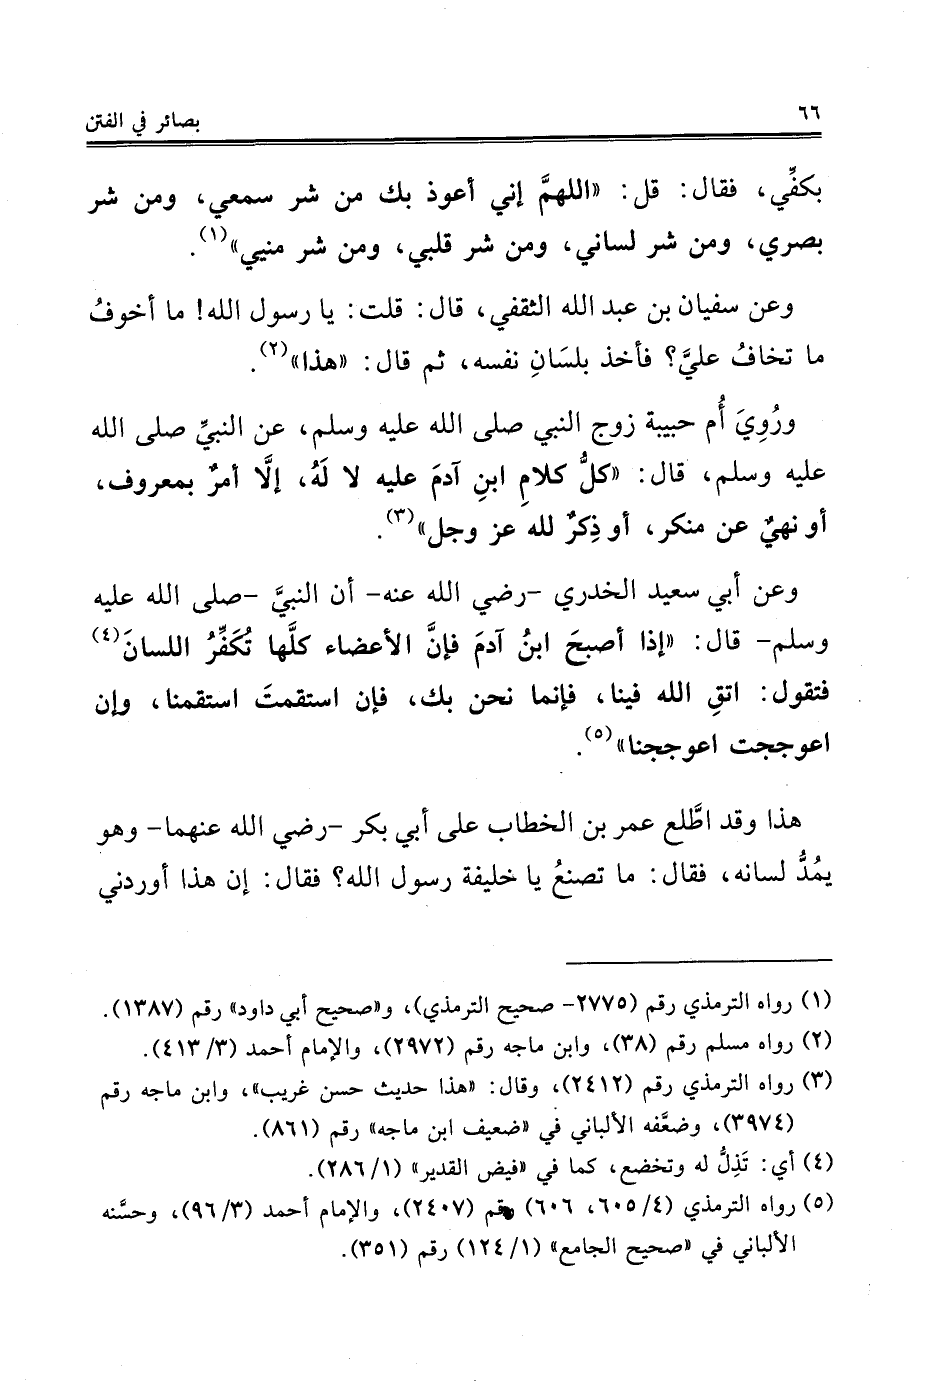 ٦٦ بصائر في الفتن
بكفِّي، فقال: قل: «اللهمَّ إني أعوذ بك من شر سمعي، ومن شر
بصري، ومن شر لساني، ومن شر قلبي، ومن شر منيي»(١).
وعن سفيان بن عبد الله الثقفي، قال: قلت: يا رسول الله! ما أخوفُ
ما تخافُ عليَّ؟ فأخذ بلسَانِ نفسه، ثم قال: «هذا»(٢).
ورُوِيَ أُم حبيبة زوج النبي صلى الله عليه وسلم، عن النبيِّ صلى الله
عليه وسلم، قال: «كلُّ كلامِ ابنِ آدمَ عليه لا لَهُ، إلَّا أمرٌ بمعروف،
أو نهيٌ عن منكر، أو ذِكرٌ لله عز وجل»(٣).
وعن أبي سعيد الخدري -رضي الله عنه- أن النبيَّ -صلى الله عليه
وسلم- قال: «إذا أصبحَ ابنُ آدمَ فإنَّ الأعضاء كلَّها تُكَفِّرُ اللسانَ(٤)
فتقول: اتقِ الله فينا، فإنما نحن بك، فإن استقمتَ استقمنا، وإن
اعوججت اعوججنا»(٥).
هذا وقد اطَّلع عمر بن الخطاب على أبي بكر -رضي الله عنهما- وهو
يمُدُّ لسانه، فقال: ما تصنعُ يا خليفة رسول الله؟ فقال: إن هذا أوردني
(١) رواه الترمذي رقم (٢٧٧٥- صحيح الترمذي)، و«صحيح أبي داود» رقم (١٣٨٧).
(٢) رواه مسلم رقم (٣٨)، وابن ماجه رقم (٢٩٧٢)، والإمام أحمد (٣/ ٤١٣).
(٣) رواه الترمذي رقم (٢٤١٢)، وقال: «هذا حديث حسن غريب»، وابن ماجه رقم
(٣٩٧٤)، وضعَّفه الألباني في «ضعيف ابن ماجه» رقم (٨٦١).
(٤) أي: تَذِلُّ له وتخضع، كما في «فيض القدير» (١/ ٢٨٦).
(٥) رواه الترمذي (٤/ ٦٠٥، ٦٠٦) رقم (٢٤٠٧)، والإمام أحمد (٣/ ٩٦)، وحسَّنه
الألباني في «صحيح الجامع» (١/ ١٢٤) رقم (٣٥١).